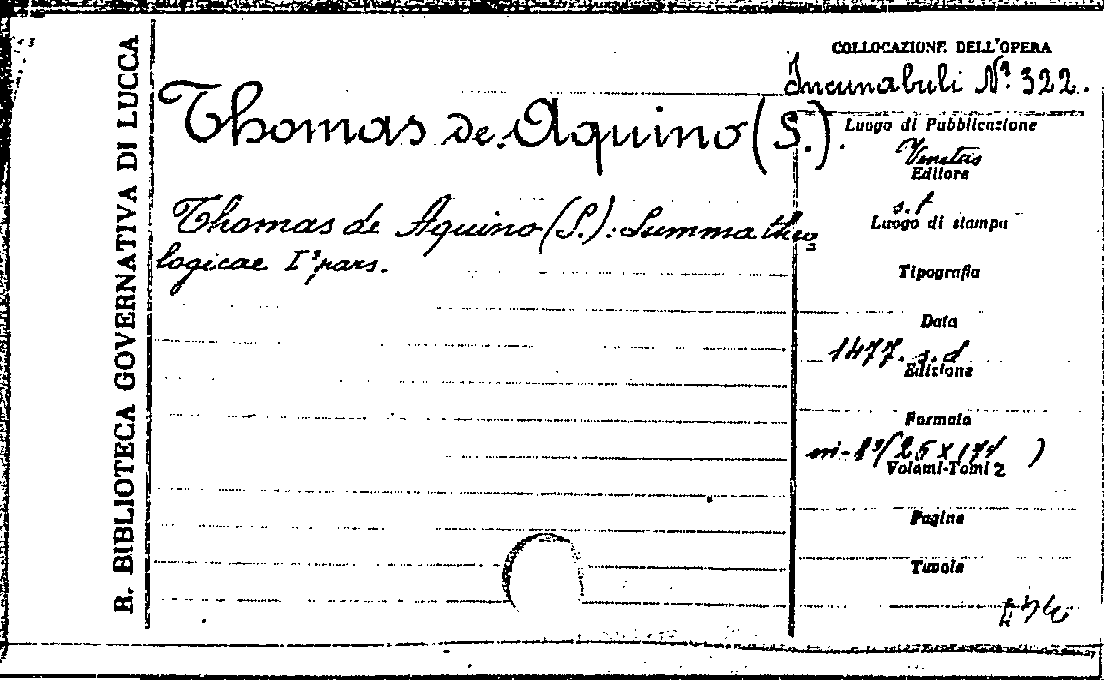 R. BIBLIOTECA GOVERNATIVA DI LUCCA
COLLOCAZIONE DELL'OPERA
Incunabuli Nº 322.
Thomas de Aquino (S.).
Thomas de Aquino (S.): Summa theo
logicae Iª pars.
Luogo di Pubblicazione
Venetiis
Editore
s.t
Luogo di stampa
Tipografia
Data
1477. s.d
Edizione
Formato
Volumi-Tomi 2
Pagine
Tavole